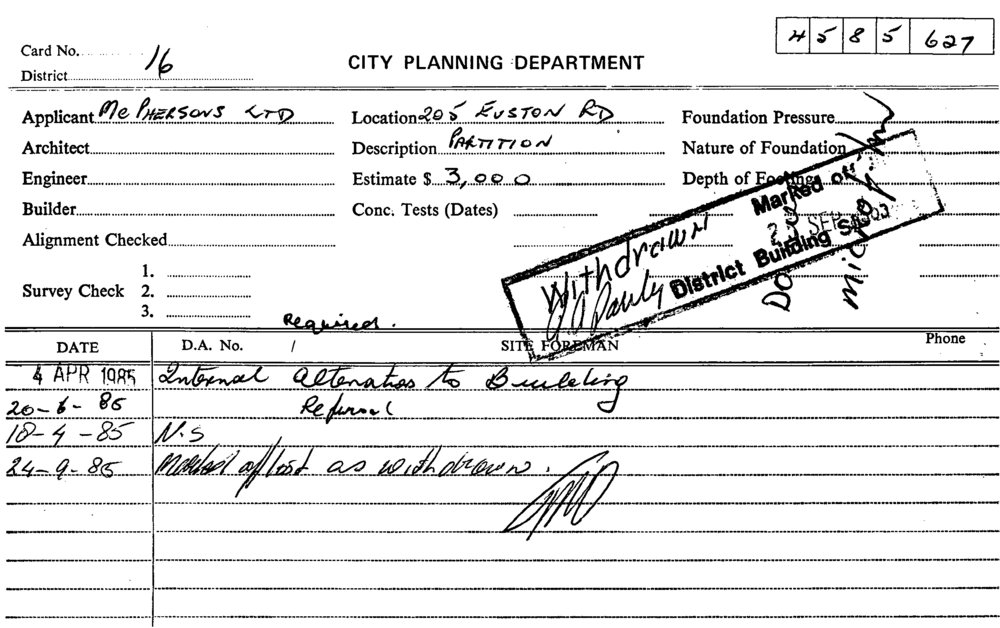 4 5 8 5 627
Card No. 16
CITY PLANNING DEPARTMENT
District
Applicant McPHERSONS LTD Location 205 EUSTON RD Foundation Pressure
Architect Description PARTITION Nature of Foundation
Engineer Estimate $ 3,000 Depth of Footings
Builder Conc. Tests (Dates)
Alignment Checked
1.
Survey Check 2.
3.
Marked off
SEP
District Building
Withdrawn
Required.
DATE D.A. No. / SITE FOREMAN Phone
4 APR 1985 Internal Alterations to Building
20-6-85 Referral
18-4-85 N.S
24-9-85 Marked off list as withdrawn.